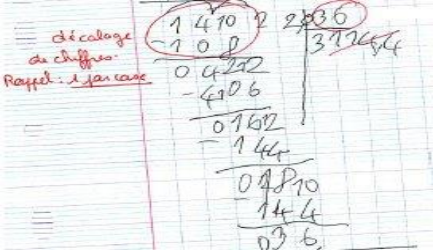 décalage
de chiffres.
Rappel: 1 par case
1 4 10 2 2 36
- 1 0 8 3 1 1 4,4
0 4 2 12
- 4 10 6
0 1 6 2
- 1 4 4
0 1 8 10
1 4 4
0 3 6